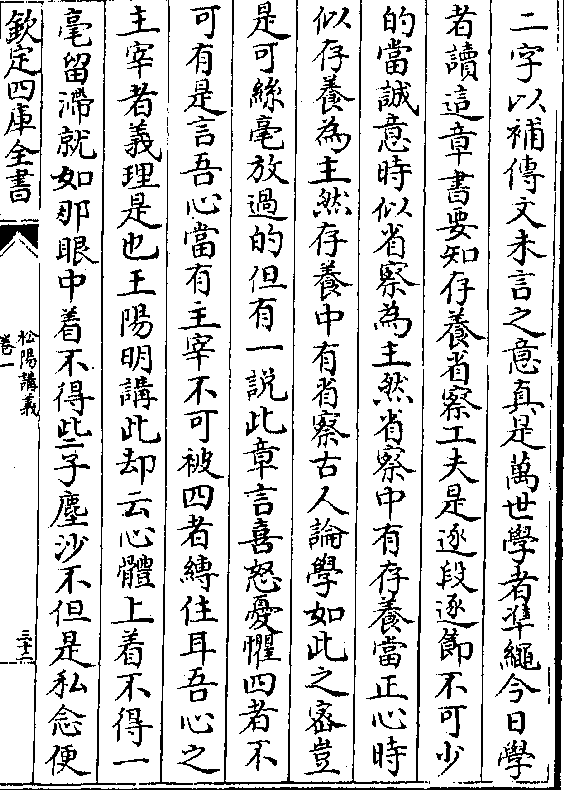 二字以補傳文未言之意真是萬世學者凖繩今日學
者讀這章書要知存養省察工夫是逐段逐節不可少
的當誠意時似省察為主然省察中有存養當正心時
似存養為主然存養中有省察古人論學如此之密豈
是可絲毫放過的但有一説此章言喜怒憂懼四者不
可有是言吾心當有主宰不可被四者縛住耳吾心之
主宰者義理是也王陽明講此却云心體上着不得一
毫留滯就如那眼中着不得些子塵沙不但是私念便
欽定四庫全書
松陽講義
卷一
三十二